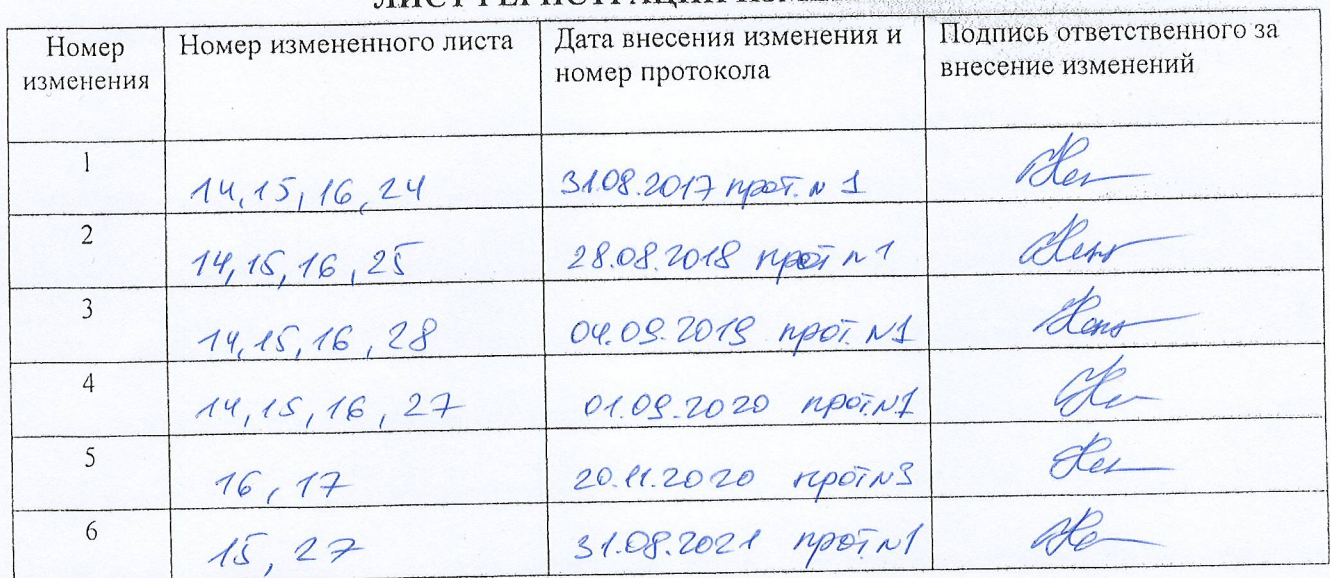 Номер изменения | Номер измененного листа | Дата внесения изменения и номер протокола | Подпись ответственного за внесение изменений
1 | 14, 15, 16, 24 | 31.08.2017 прот. N 1
2 | 14, 15, 16, 25 | 28.08.2018 прот N 1
3 | 14, 15, 16, 28 | 04.09.2019 прот. N1
4 | 14, 15, 16, 27 | 01.09.2020 прот. N1
5 | 16, 17 | 20.11.2020 прот N3
6 | 15, 27 | 31.08.2021 прот N1